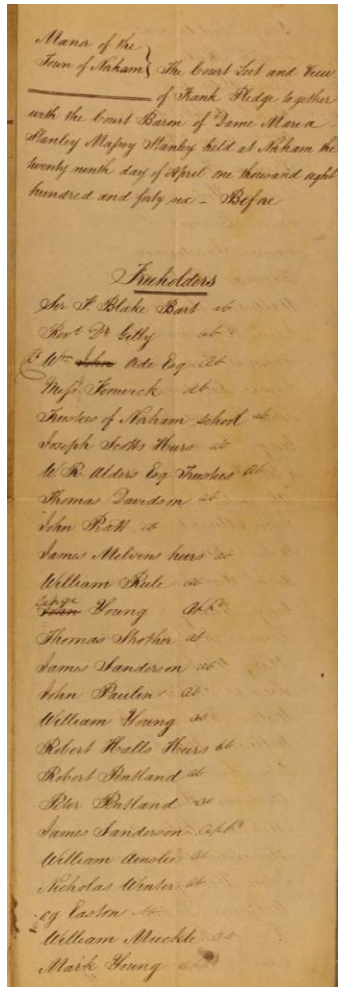 Manor of the
Town of Norham } The Court Leet and View
of Frank Pledge together
with the Court Baron of Dame Maria
Stanley Massey Stanley held at Norham the
twenty ninth day of April one thousand eight
hundred and forty six – Before
Freeholders
Sir F. Blake Bart ab
Revd. Dr Gilly ab
Wm John Ade Esq ab
Miss Fenwick ab
Trustees of Norham School ab
Joseph Scotts Heirs ab
W R Alders Esq Trustees ab
Thomas Davidson ab
John Ratt ab
James Melvins heirs ab
William Rule ab
George
John Young
Thomas Strother ab
James Sanderson ab
John Paulin ab
William Young ab
Robert Halls Heirs ab
Robert Pentland ab
Peter Pentland ab
James Sanderson
William Ainslie ab
Nicholas Winter ab
Easton ab
William Muckle ab
Mark Young